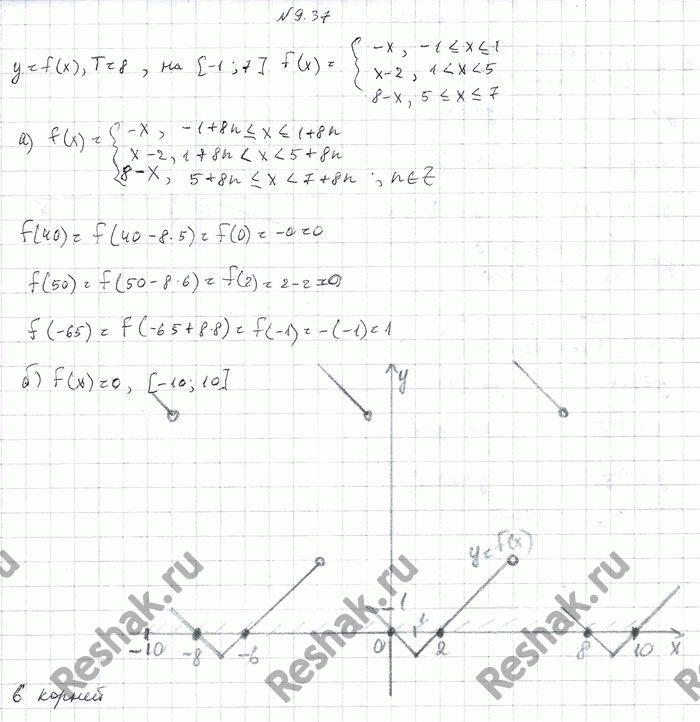 №9.37
y=f(x), T=8, на [-1;7] f(x) = { -x, -1≤x≤1
x-2, 1<x<5
8-x, 5≤x≤7
а) f(x) = { -x, -1+8n≤x≤1+8n
x-2, 1+8n<x<5+8n
8-x, 5+8n≤x<7+8n ; n∈Z
f(40) = f(40-8·5) = f(0) = -0=0
f(50) = f(50-8·6) = f(2) = 2-2=0
f(-65) = f(-65+8·8) = f(-1) = -(-1)=1
б) f(x)=0, [-10;10]
y
y=f(x)
1
1
-10 -8 -6 0 2 8 10 x
6 корней
Reshak.ru
Reshak.ru
Reshak.ru